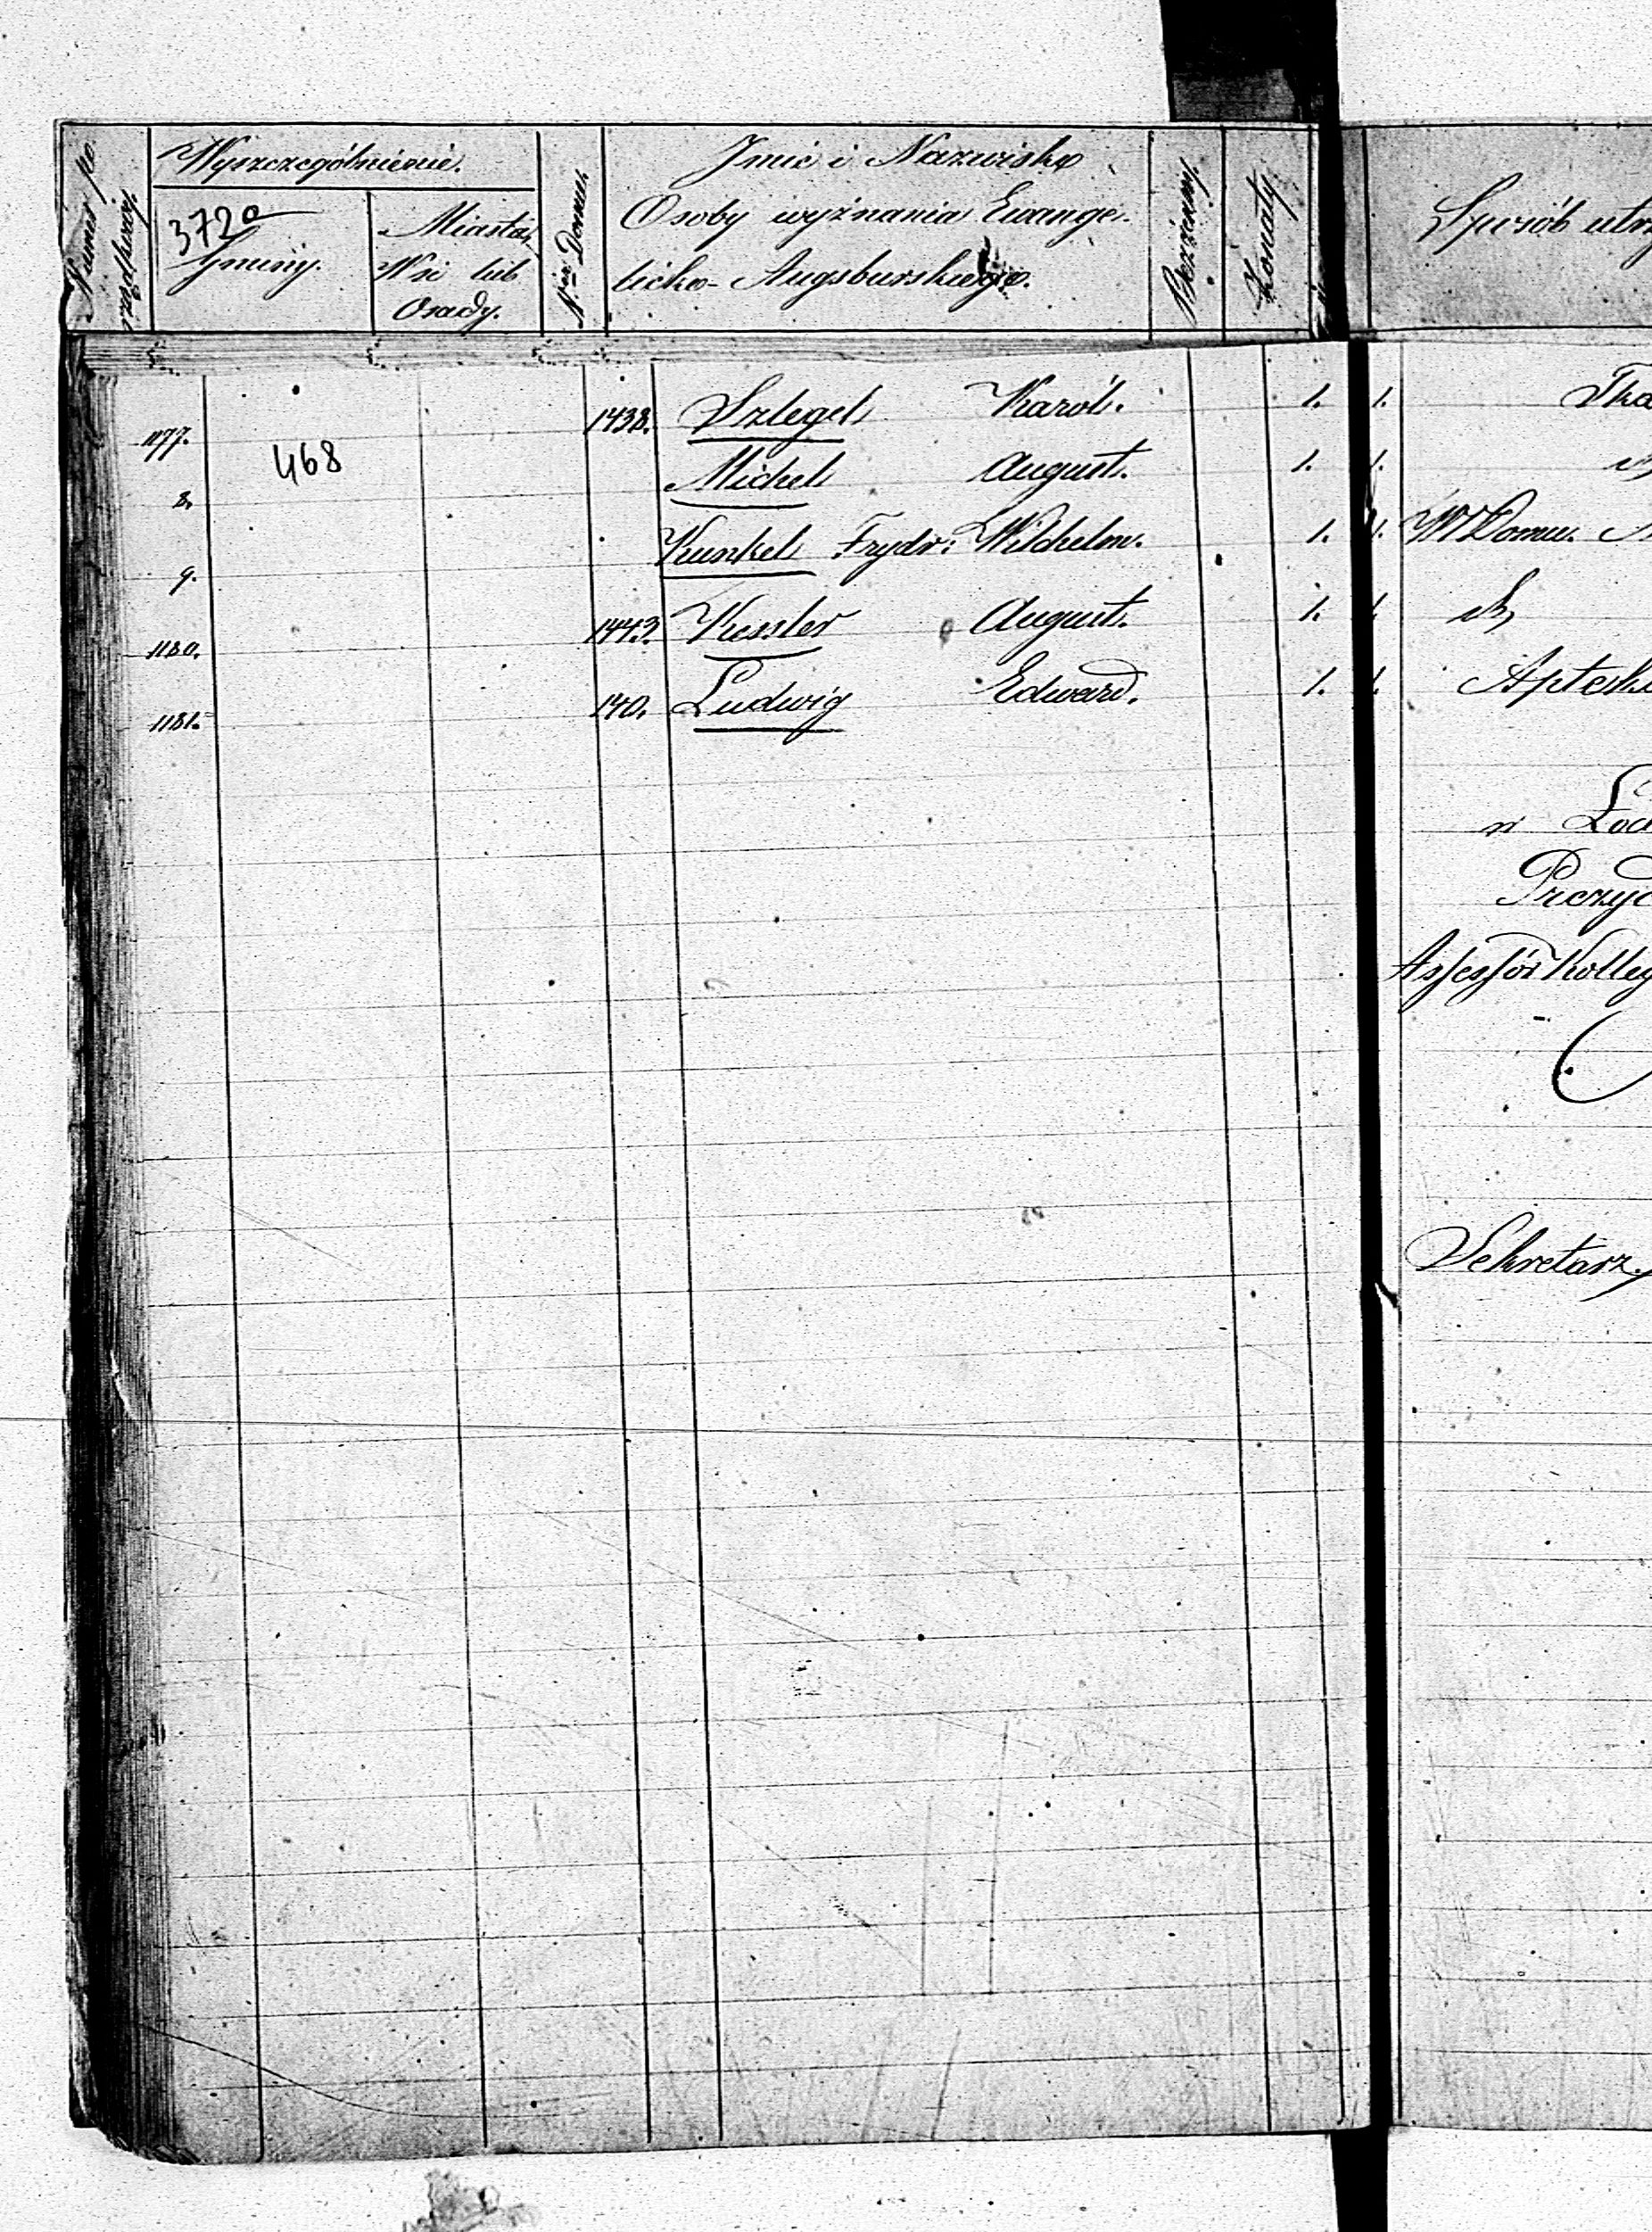 Numer po
rządkowy.
Wyszczególnienie.
372a
Gminy.
Miasta,
Wsi lub
Osady.
Nr Domu.
Imie i Nazwisko
Osoby wyznania Ewange-
licko-Augsburskiego.
Bezżenny.
Żonaty.
Sposób utrz
1177. 1438. Szlegel Karól. 1. 1. Tka
468
8. Michel August. 1. 1.
9. Kunkel Frydr: Wilchelm. 1. 1. W Domu.
1180. 1443. Kessler August. 1. 1.
1181. 140. Ludwig Edward. 1. 1. Aptek
w Łod
Prezyd
Assessór Kolleg
Sekretarz